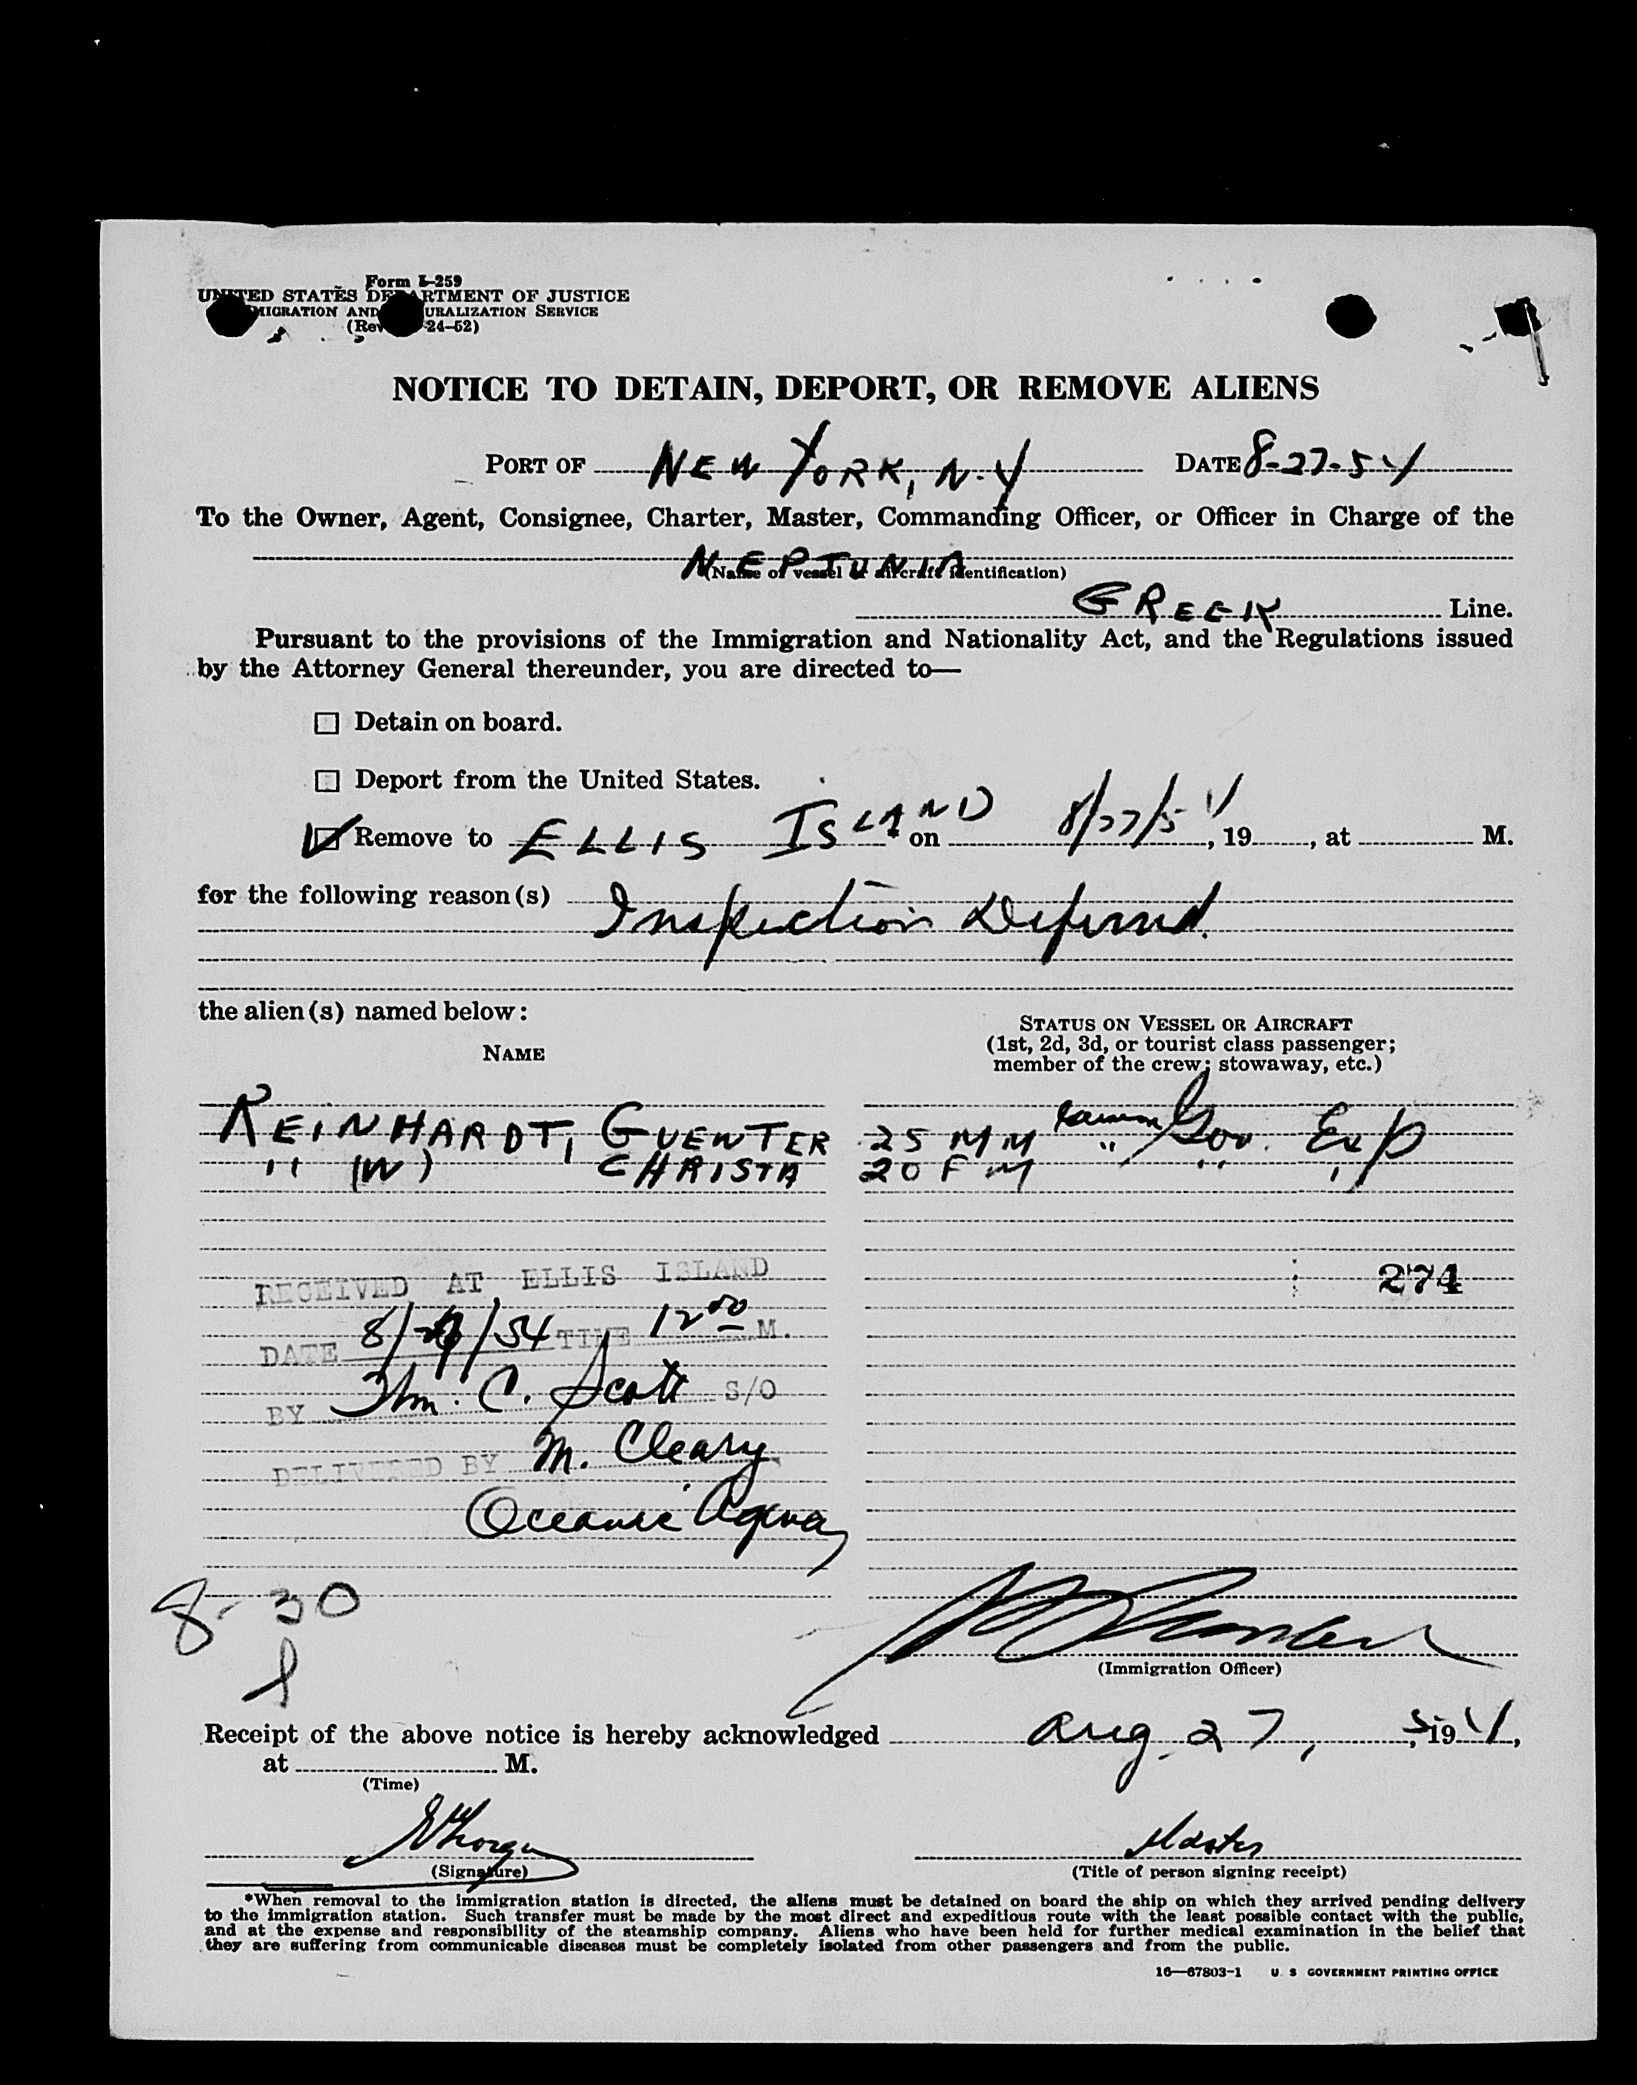 Form I-259
UNITED STATES DEPARTMENT OF JUSTICE
IMMIGRATION AND NATURALIZATION SERVICE
(Rev. 24-52)
NOTICE TO DETAIN, DEPORT, OR REMOVE ALIENS
PORT OF NEW YORK, N.Y DATE 8-27-54
To the Owner, Agent, Consignee, Charter, Master, Commanding Officer, or Officer in Charge of the
NEPTUNIA
(Name of vessel or aircraft identification)
GREEK Line.
Pursuant to the provisions of the Immigration and Nationality Act, and the Regulations issued
by the Attorney General thereunder, you are directed to—
Detain on board.
Deport from the United States.
Remove to ELLIS ISLAND * on 8/27/54, 19, at M.
for the following reason(s) Inspection Deferred.
the alien(s) named below:
NAME
STATUS ON VESSEL OR AIRCRAFT
(1st, 2d, 3d, or tourist class passenger;
member of the crew; stowaway, etc.)
REINHARDT, GUENTER 25 M M Gov. Exp
" (W) CHRISTA 20 F M " " "
274
RECEIVED AT ELLIS ISLAND
DATE 8/27/54 TIME 12 00 M.
BY Thm. C. Scott S/O
DELIVERED BY M. Cleary
Oceanic Agency
8-30
(Immigration Officer)
Receipt of the above notice is hereby acknowledged Aug. 27, 5194,
at M.
(Time)
Master
(Signature)
(Title of person signing receipt)
*When removal to the immigration station is directed, the aliens must be detained on board the ship on which they arrived pending delivery
to the immigration station. Such transfer must be made by the most direct and expeditious route with the least possible contact with the public,
and at the expense and responsibility of the steamship company. Aliens who have been held for further medical examination in the belief that
they are suffering from communicable diseases must be completely isolated from other passengers and from the public.
16—67803-1 U. S. GOVERNMENT PRINTING OFFICE